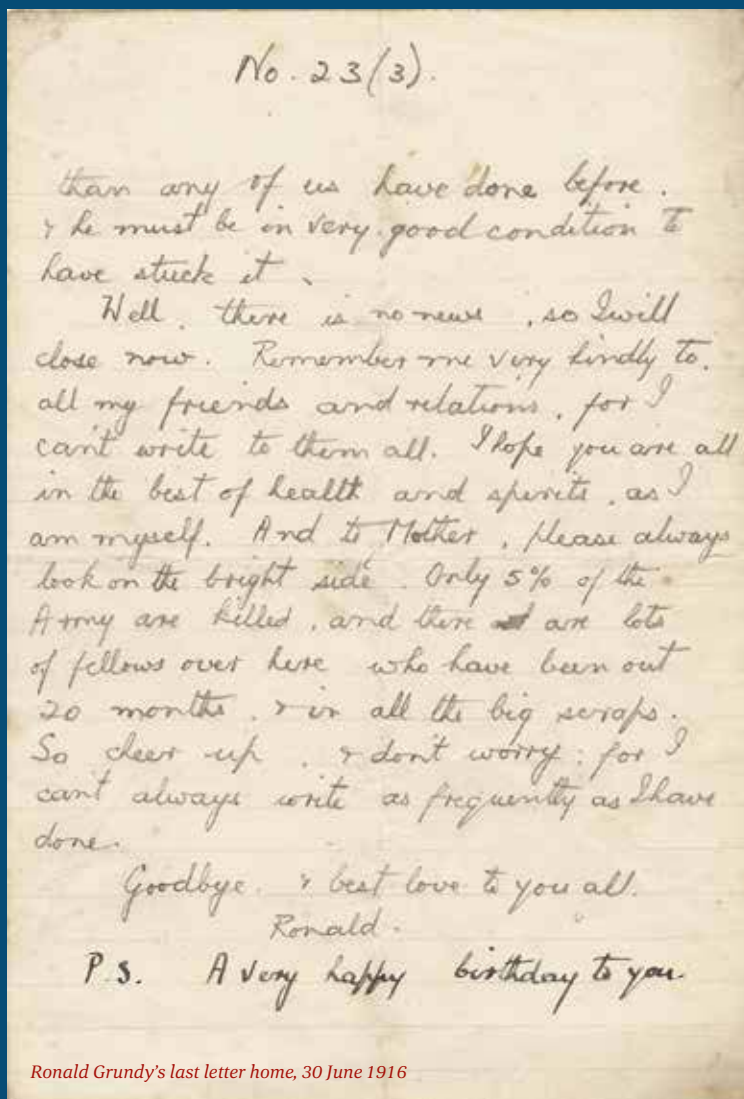 No. 23(3).
than any of us have done before.
& he must be in very good condition to
have stuck it.
Well, there is no news, so I will
close now. Remember me very kindly to
all my friends and relations, for I
can't write to them all. I hope you are all
in the best of health and spirits, as I
am myself. And to Mother, please always
look on the bright side. Only 5% of the
Army are killed, and there are lots
of fellows over here who have been out
20 months, & in all the big scraps.
So cheer up, & don't worry: for I
can't always write as frequently as I have
done.
Goodbye. & best love to you all.
Ronald.
P.S. A very happy birthday to you.
Ronald Grundy's last letter home, 30 June 1916